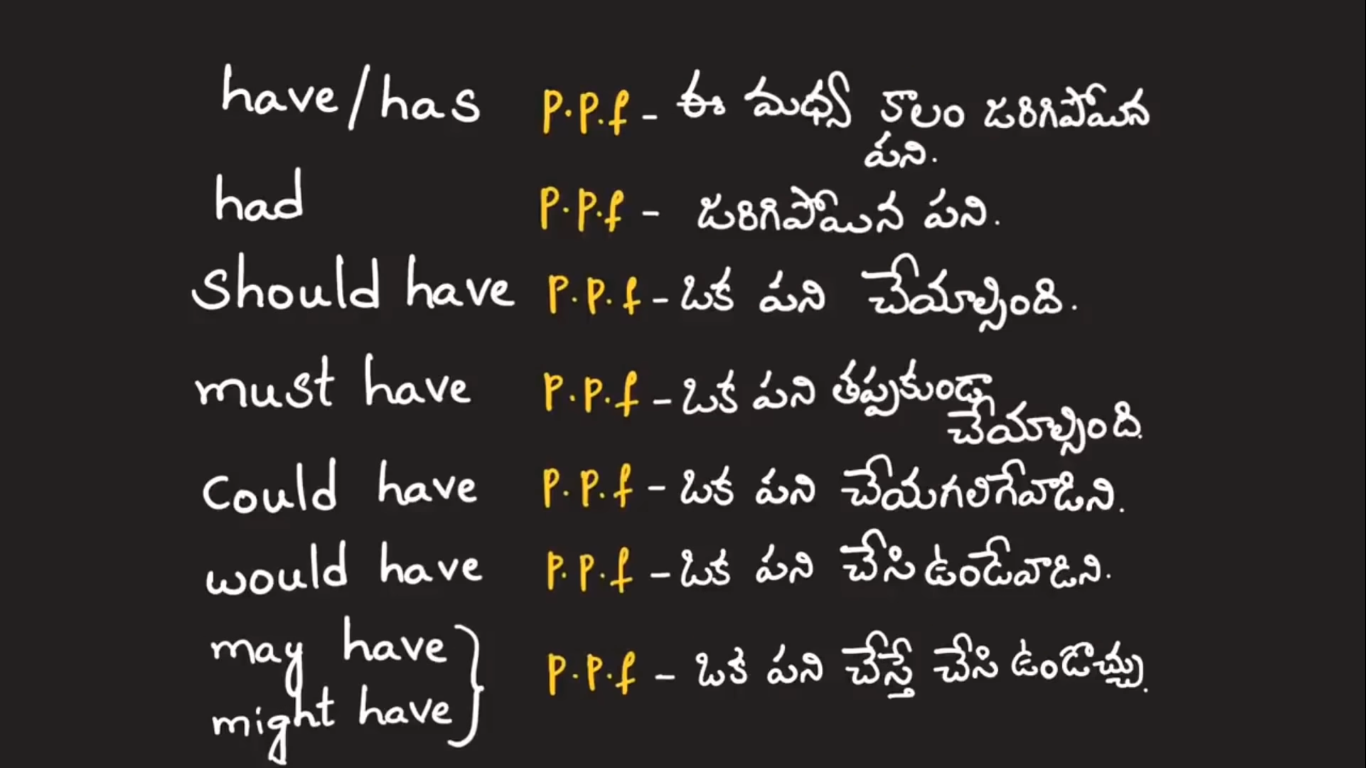 have/has P.P.f - ఈ మధ్య కాలం జరిగిపోయిన
పని.
had P.P.f - జరిగిపోయిన పని.
should have P.P.f - ఒక పని చేయాల్సింది.
must have P.P.f - ఒక పని తప్పకుండా
చేయాల్సింది.
could have P.P.f - ఒక పని చేయగలిగేవాడిని.
would have P.P.f - ఒక పని చేసి ఉండేవాడిని.
may have
might have } P.P.f - ఒక పని చేస్తే చేసి ఉండొచ్చు.